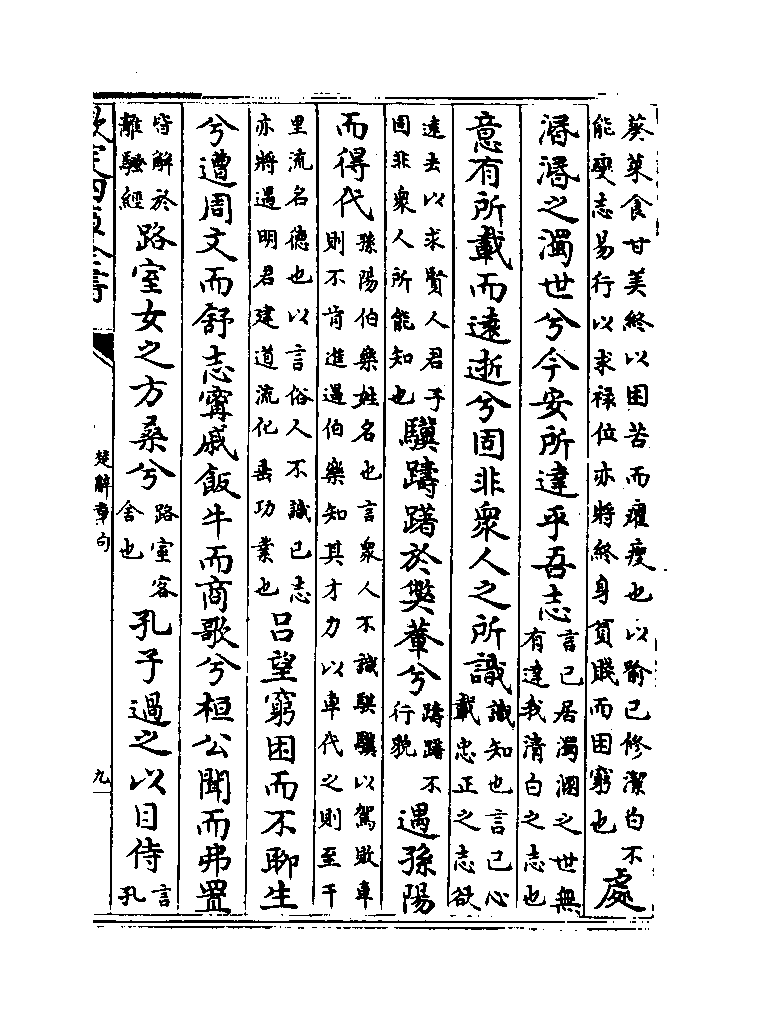 葵菜食甘美終以困苦而癯瘦也以喻己修潔白不
能變志易行以求祿位亦將終身貧賤而困窮也
處
涽涽之濁世兮今安所達乎吾志
言己居濁溷之世無
有達我清白之志也
意有所載而遠逝兮固非衆人之所識
識知也言己心
載忠正之志欲
遠去以求賢人君子
固非衆人所能知也
驥躊躇於獘輂兮
躊躇不
行貌
遇孫陽
而得代
孫陽伯樂姓名也言衆人不識騏驥以駕敗車
則不肯進遇伯樂知其才力以車代之則至千
里流名德也以言俗人不識己志
亦將遇明君建道流化垂功業也
呂望窮困而不聊生
兮遭周文而舒志甯戚飯牛而商歌兮桓公聞而弗置
皆解於
離騷經
路室女之方桑兮
路室客
舍也
孔子過之以自侍
言
孔
欽定四庫全書
楚辭章句
九